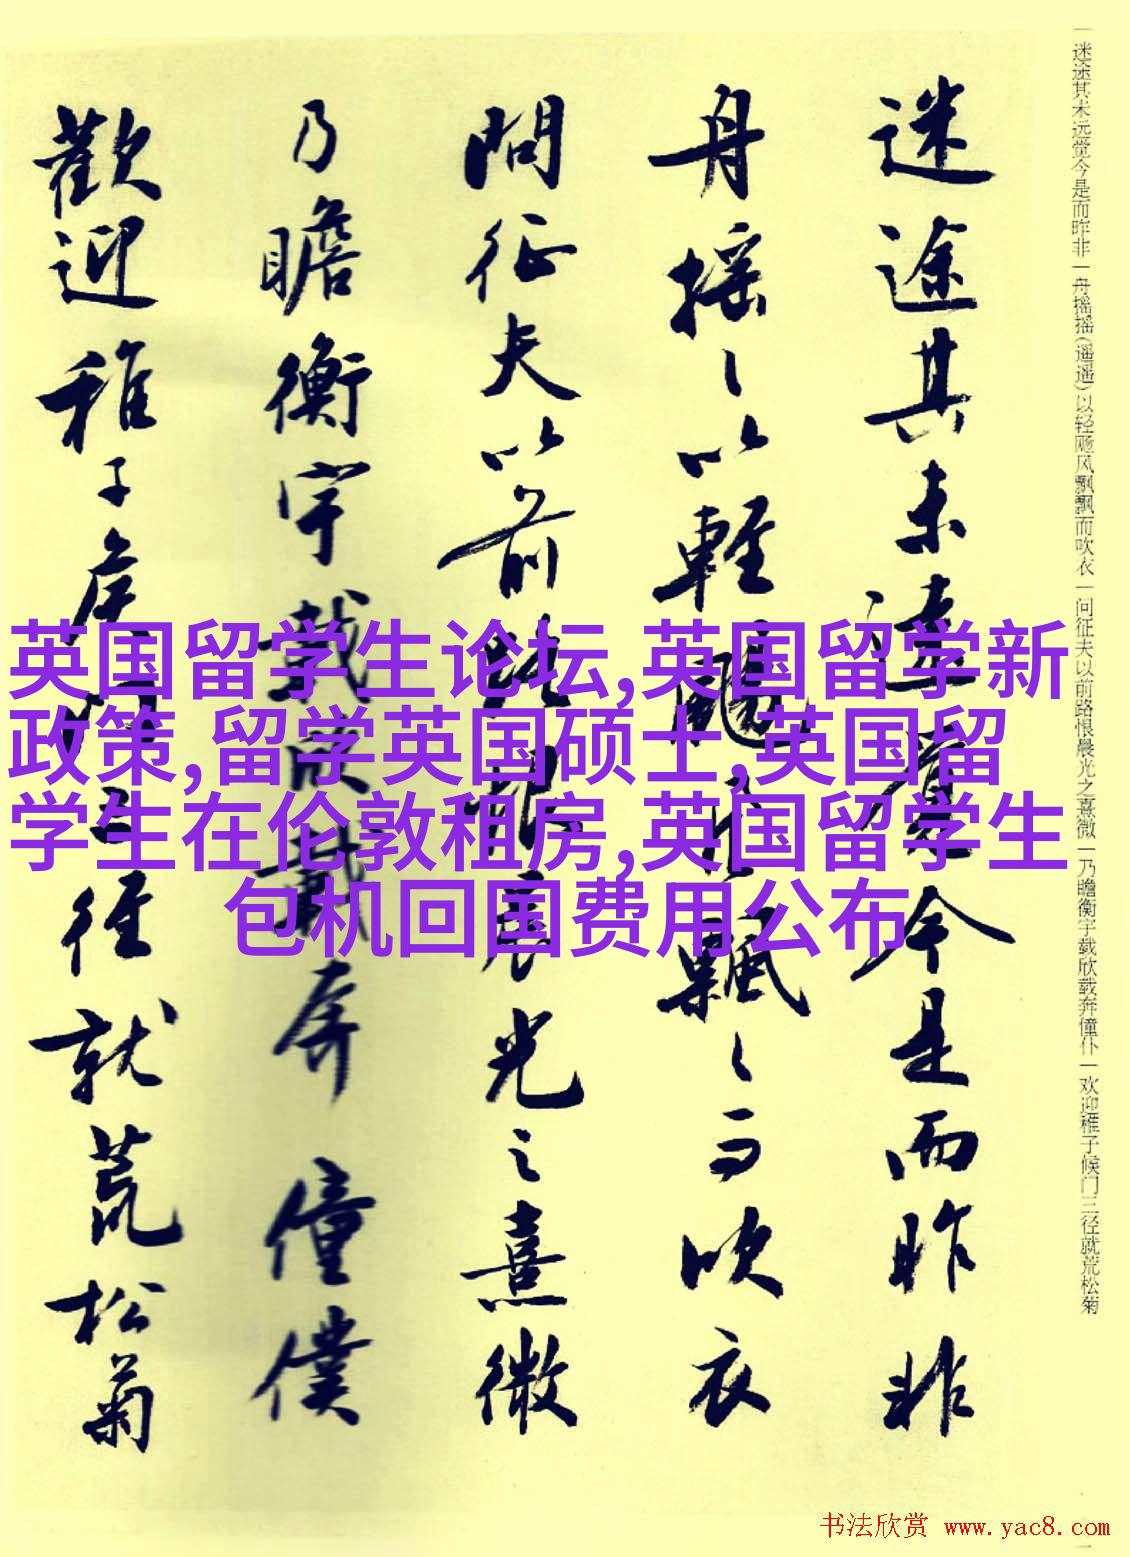 一迷途其未远觉今是而昨非一舟摇摇(遥遥)以轻飏风飘飘而吹衣一问征夫以前路恨晨光之熹微一乃瞻衡宇载欣载奔僮仆一欢迎稚子候门三径就荒松菊
迷途其未遠覺今是而昨非
舟摇〻以輕颺風飄〻而吹衣
問征夫以前路恨晨光之熹微
乃瞻衡宇載欣載奔僮僕
歡迎稚子候門三徑就荒松菊
英国留学生论坛,英国留学新
政策,留学英国硕士,英国留
学生在伦敦租房,英国留学生
包机回国费用公布
书法欣赏 www.yac8.com